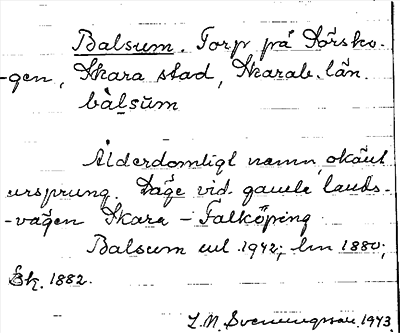 Balsum. Torp på Dörsko-
-gen, Skara stad, Skarab. län.
bàlsūm
Ålderdomligt namn, okänt
ursprung. Läge vid gamla lands-
-vägen Skara - Falköping
Balsum uul 1942; lm 1880;
Ek. 1882.
L.M. Svenungsson. 1943.